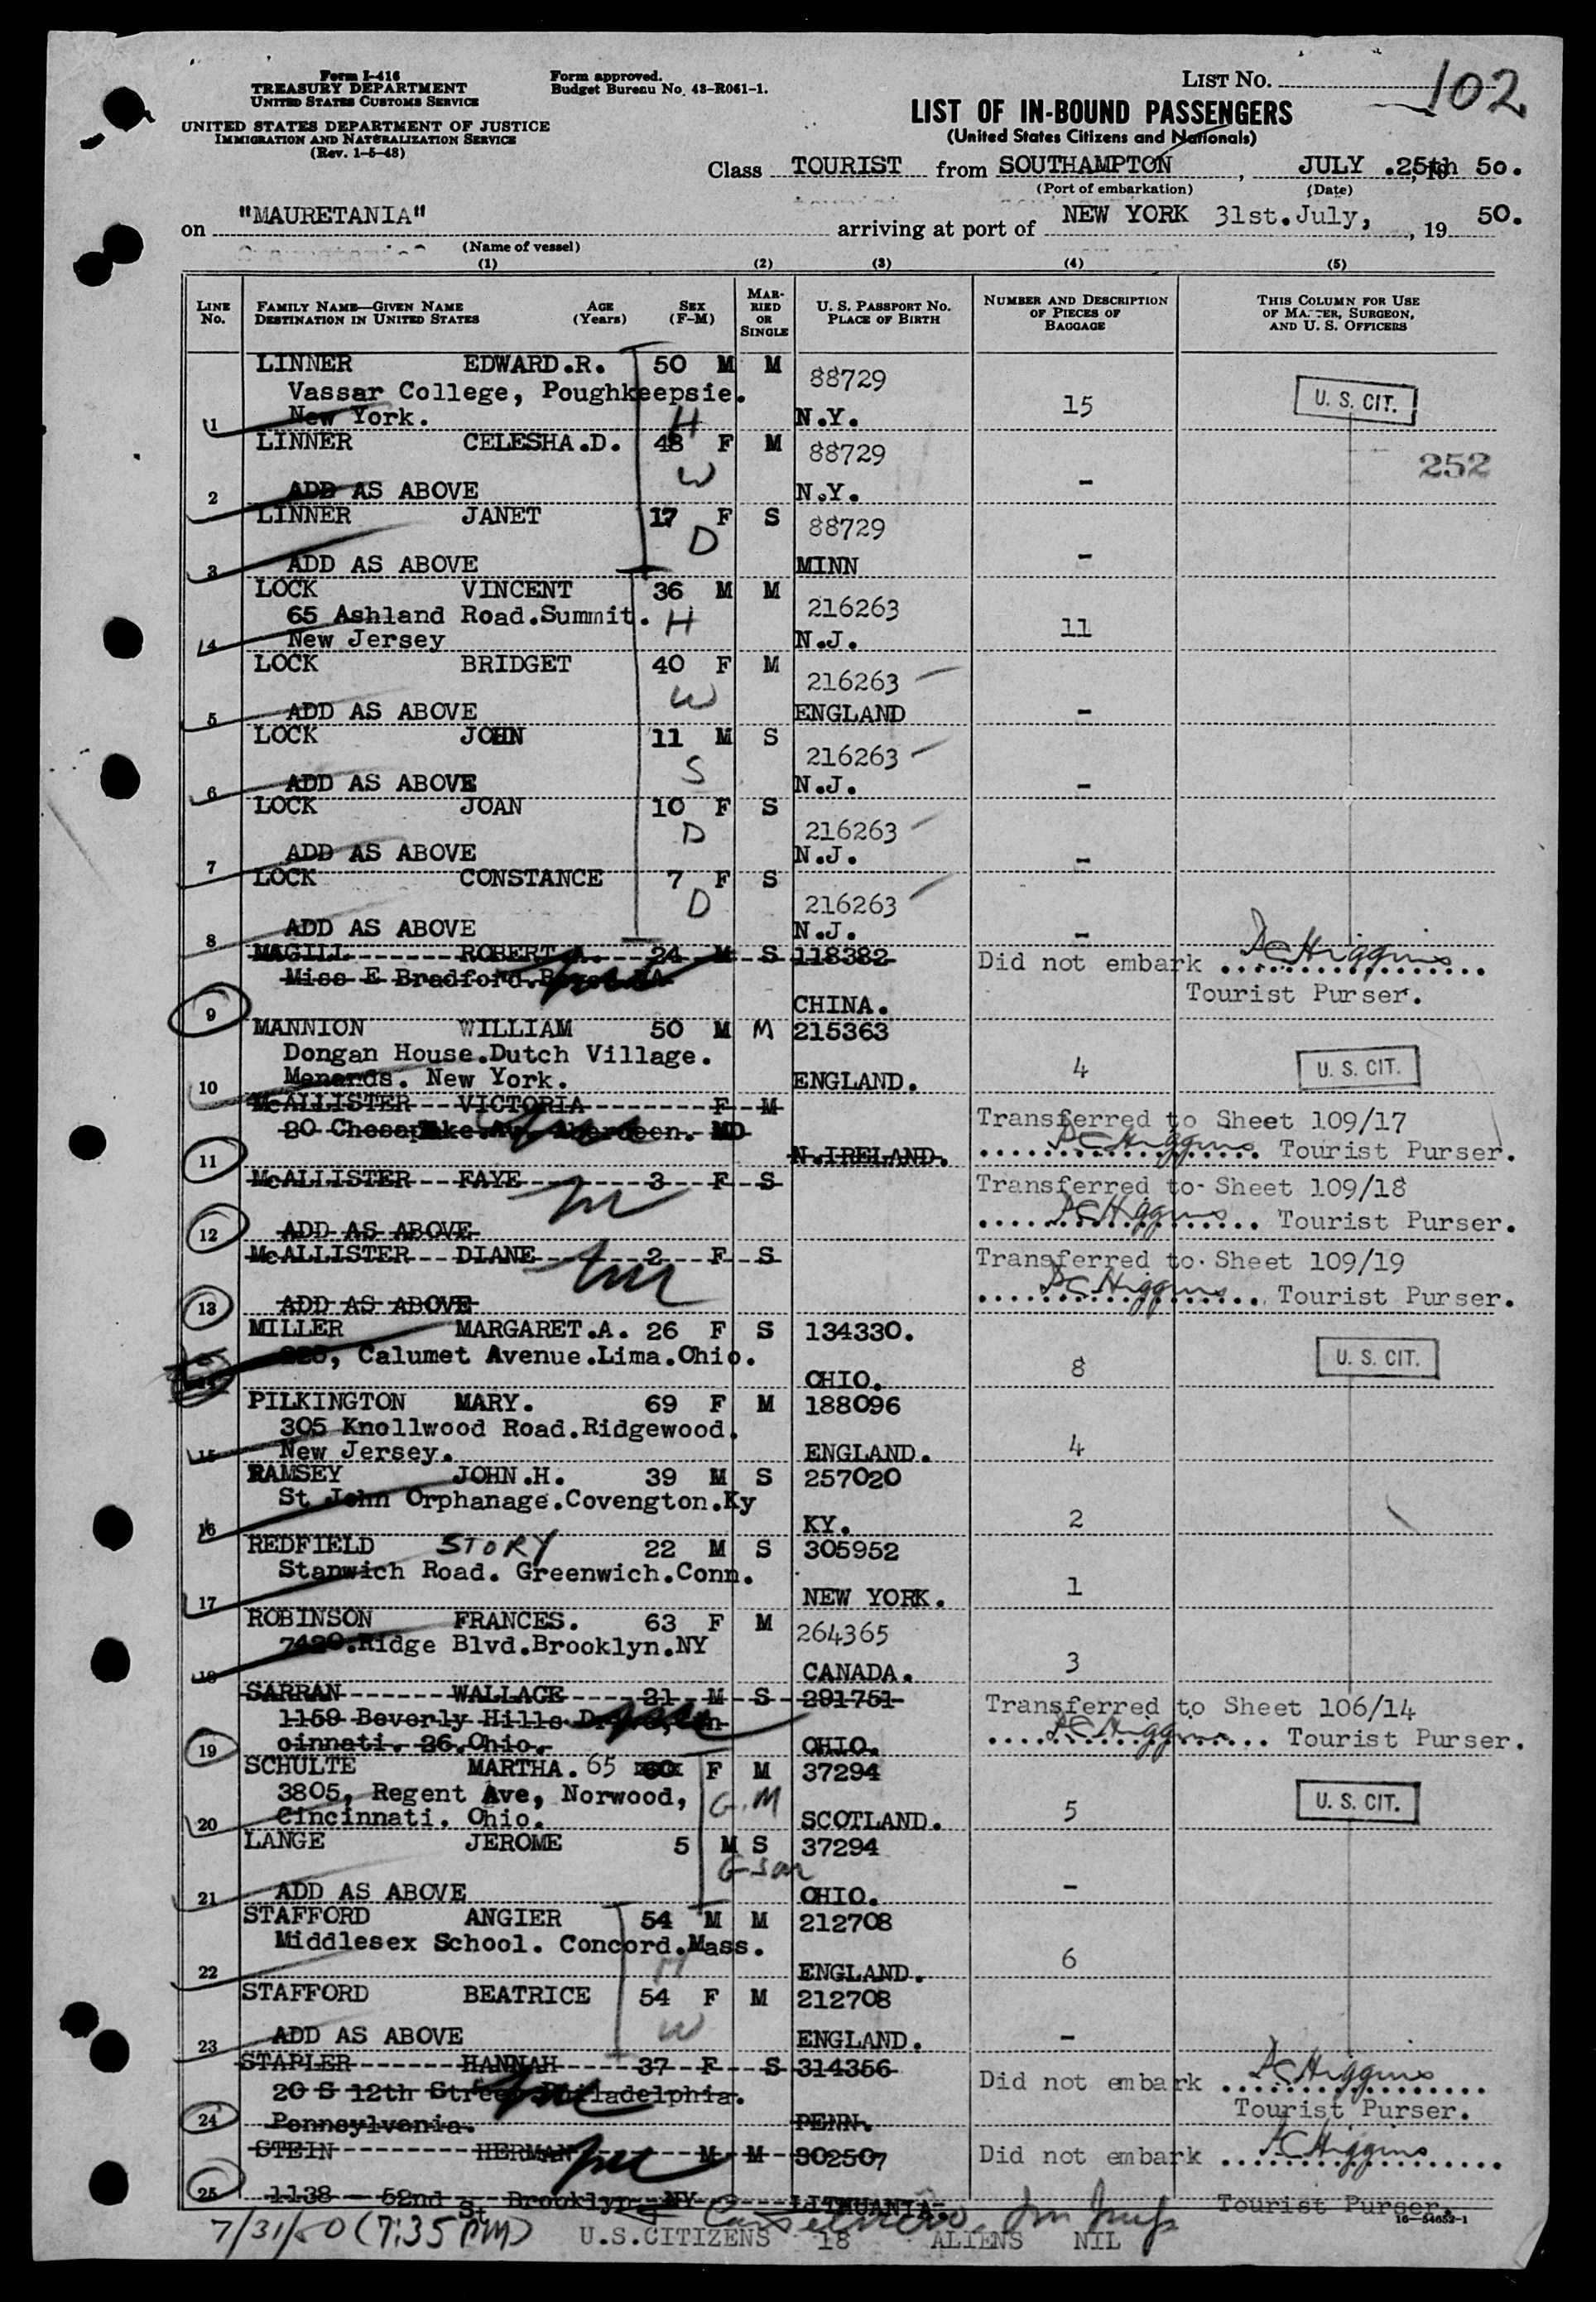 Form I-416
TREASURY DEPARTMENT
UNITED STATES CUSTOMS SERVICE
UNITED STATES DEPARTMENT OF JUSTICE
IMMIGRATION AND NATURALIZATION SERVICE
(Rev. 1-5-48)
Form approved.
Budget Bureau No. 43-R061-1.
LIST NO. 102
LIST OF IN-BOUND PASSENGERS
(United States Citizens and Nationals)
Class TOURIST from SOUTHAMPTON, JULY .25th 50.
(Port of embarkation) (Date)
on "MAURETANIA" arriving at port of NEW YORK 31st.July, , 19 50.
(Name of vessel)
(1) (2) (3) (4) (5)
LINE No. FAMILY NAME—GIVEN NAME DESTINATION IN UNITED STATES AGE (Years) SEX (F-M) MARRIED OR SINGLE U. S. PASSPORT NO. PLACE OF BIRTH NUMBER AND DESCRIPTION OF PIECES OF BAGGAGE THIS COLUMN FOR USE OF MASTER, SURGEON, AND U. S. OFFICERS
LINNER EDWARD.R. 50 M M 88729
Vassar College, Poughkeepsie.
1 New York. H N.Y. 15 U. S. CIT.
LINNER CELESHA.D. 48 F M 88729 252
2 ADD AS ABOVE W N.Y. -
LINNER JANET 17 F S 88729
3 ADD AS ABOVE D MINN -
LOCK VINCENT 36 M M 216263
65 Ashland Road.Summit. H
4 New Jersey N.J. 11
LOCK BRIDGET 40 F M 216263
5 ADD AS ABOVE W ENGLAND -
LOCK JOHN 11 M S 216263
6 ADD AS ABOVE S N.J. -
LOCK JOAN 10 F S 216263
7 ADD AS ABOVE D N.J. -
LOCK CONSTANCE 7 F S 216263
8 ADD AS ABOVE D N.J. -
MAGILL ROBERT A. 24 M S 118382 Did not embark DC Higgins
Miss E Bradford. Tourist Purser.
9 CHINA.
MANNION WILLIAM 50 M M 215363
Dongan House.Dutch Village.
10 Menands. New York. ENGLAND. 4 U. S. CIT.
McALLISTER VICTORIA F M Transferred to Sheet 109/17
20 Chesapeake Aberdeen. MD DC Higgins Tourist Purser.
11 N.IRELAND.
McALLISTER FAYE 3 F S Transferred to Sheet 109/18
12 ADD AS ABOVE DC Higgins Tourist Purser.
McALLISTER DIANE 2 F S Transferred to Sheet 109/19
13 ADD AS ABOVE DC Higgins Tourist Purser.
MILLER MARGARET.A. 26 F S 134330.
Calumet Avenue.Lima.Ohio. 8 U. S. CIT.
OHIO.
PILKINGTON MARY. 69 F M 188096
305 Knollwood Road.Ridgewood.
15 New Jersey. ENGLAND. 4
RAMSEY JOHN.H. 39 M S 257020
St John Orphanage.Covengton.Ky
16 KY. 2
REDFIELD STORY 22 M S 305952
Stanwich Road. Greenwich.Conn.
17 NEW YORK. 1
ROBINSON FRANCES. 63 F M 264365
7420.Ridge Blvd.Brooklyn.NY
18 CANADA. 3
SARRAN WALLACE 21 M S 291751 Transferred to Sheet 106/14
1159 Beverly Hills DC Higgins Tourist Purser.
19 cinnati. 26.Ohio. OHIO.
SCHULTE MARTHA. 65 60 F M 37294
3805, Regent Ave, Norwood, G.M
20 Cincinnati. Ohio. SCOTLAND. 5 U. S. CIT.
LANGE JEROME 5 M S 37294
G-son
21 ADD AS ABOVE OHIO. -
STAFFORD ANGIER 54 M M 212708
Middlesex School. Concord.Mass.
22 H ENGLAND. 6
STAFFORD BEATRICE 54 F M 212708
23 ADD AS ABOVE W ENGLAND. -
STAPLER HANNAH 37 F S 314356 Did not embark DC Higgins
20 S 12th Street Philadelphia. Tourist Purser.
24 Pennsylvania. PENN.
STEIN HERMAN M M 302507 Did not embark DC Higgins
25 1138 - 52nd St Brooklyn NY LITHUANIA. Tourist Purser.
16—54652-1
7/31/50 (7:35 PM) U.S.CITIZENS 18 ALIENS NIL